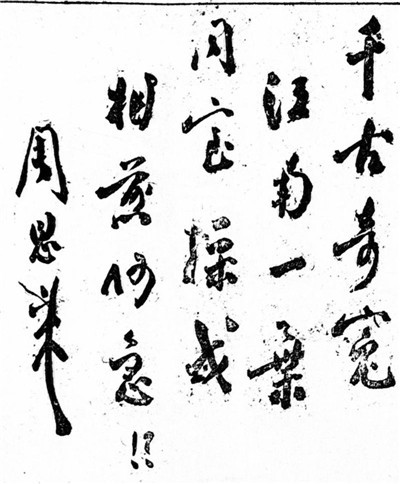 千古奇冤
江南一葉
同室操戈
相煎何急!!
周恩來